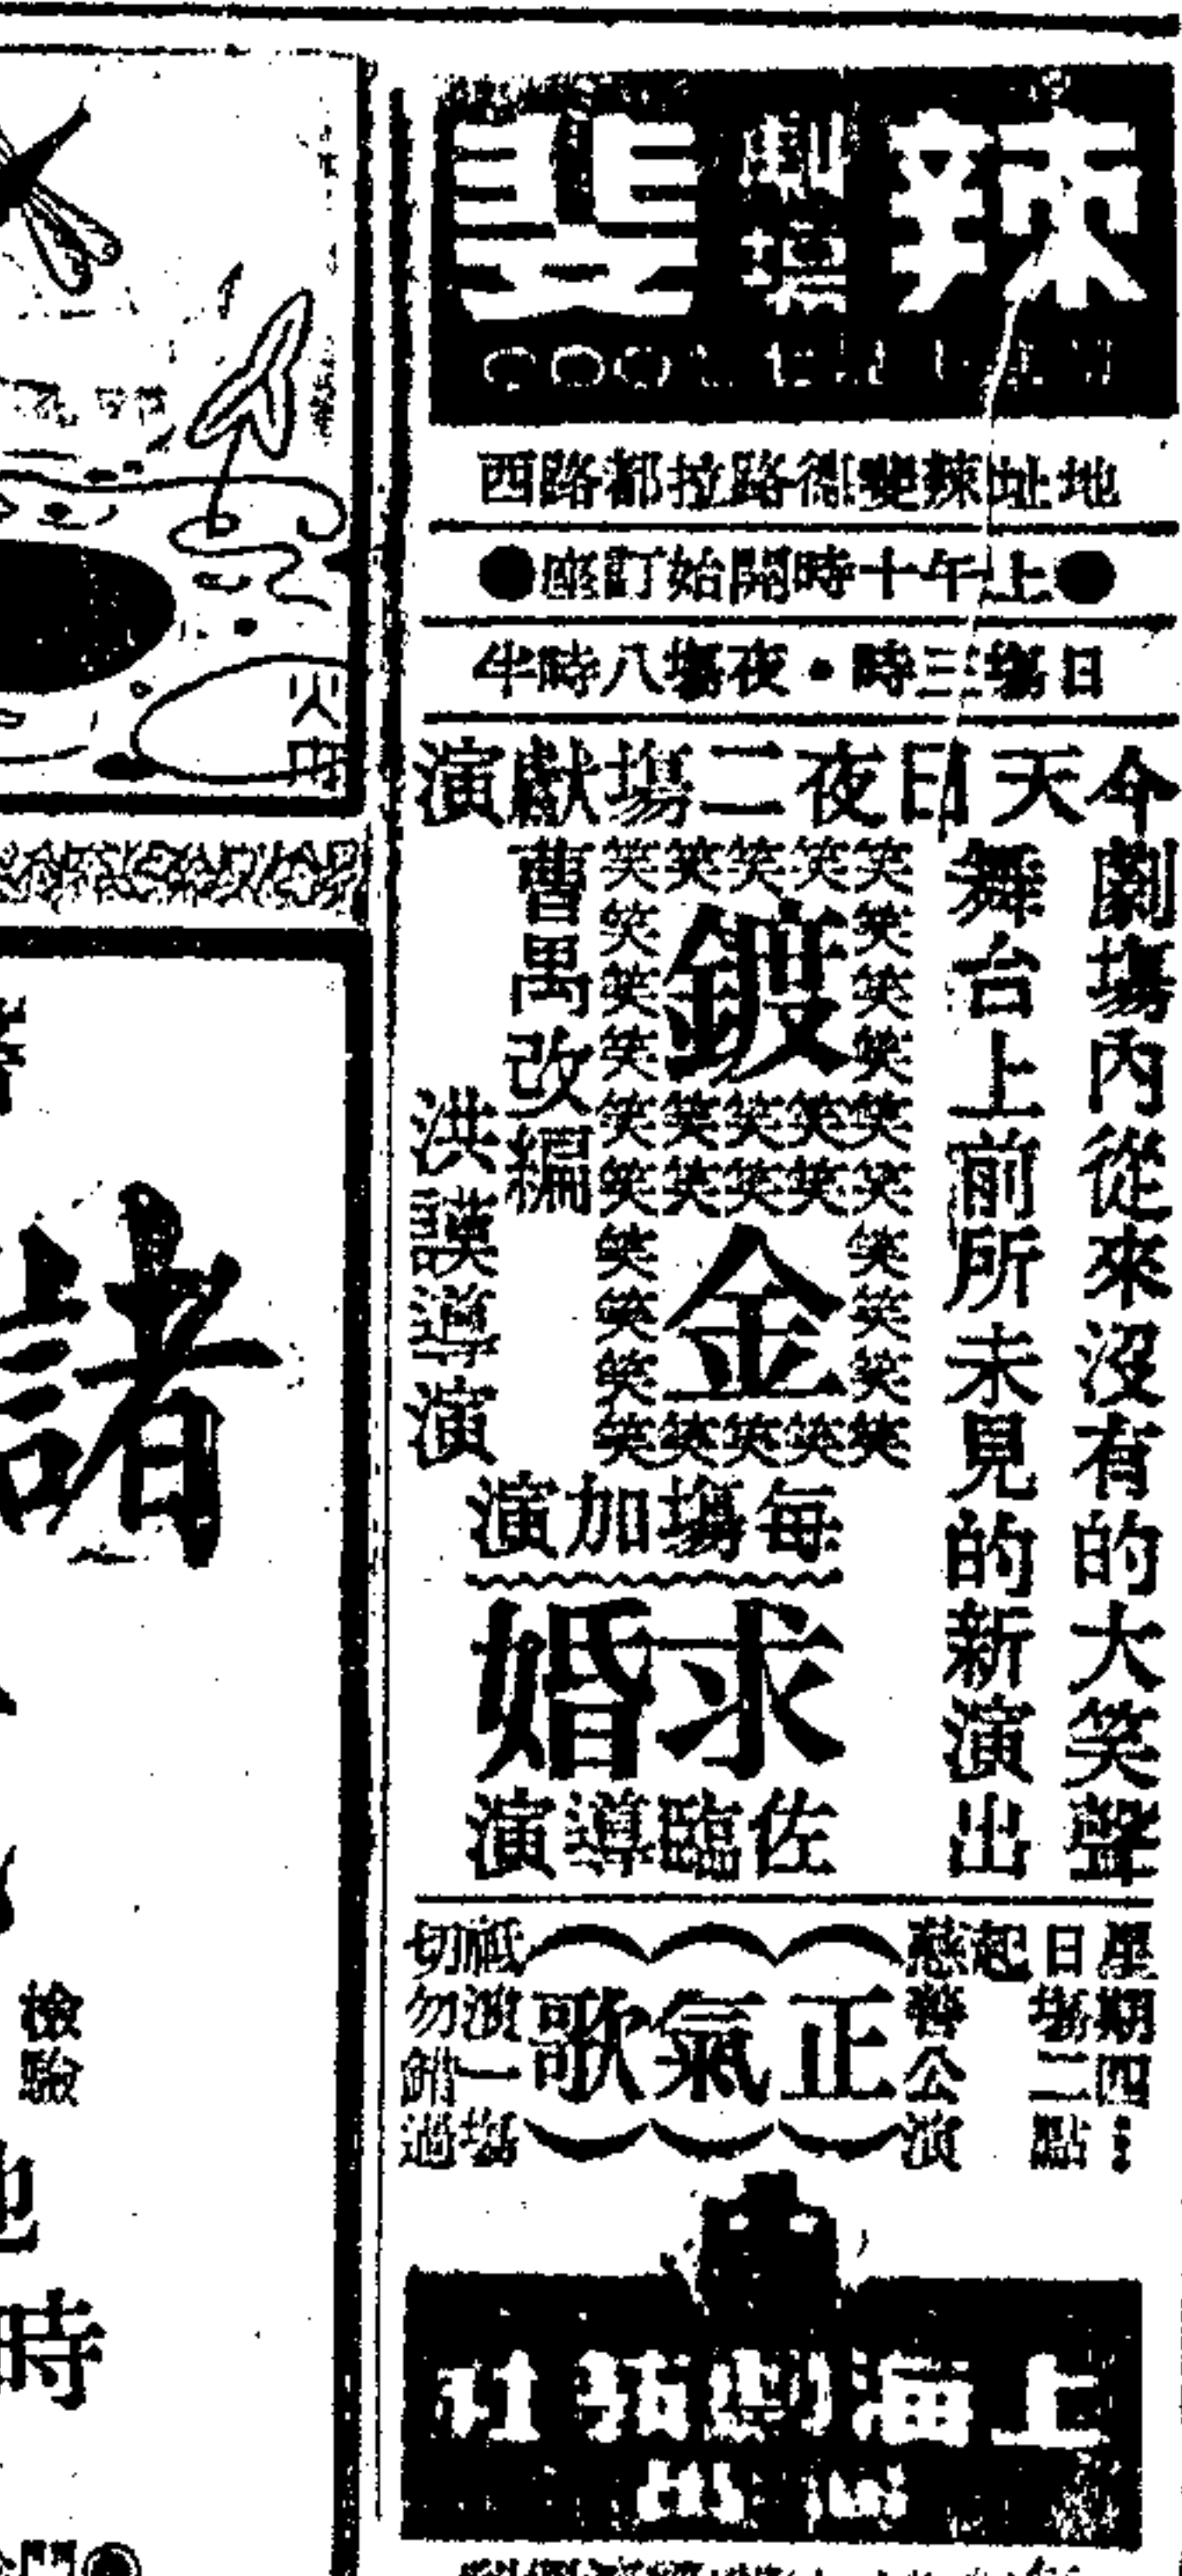 辣斐
劇場
地址辣斐德路拉都路西
●上午十時開始訂座●
日場三時・夜場八時半
今天日夜二場獻演
劇場內從來沒有的大笑聲
舞台上前所未見的新演出
笑笑笑笑笑
笑笑笑
鍍
笑笑笑
笑笑笑笑笑
笑笑笑笑笑
笑笑笑
金
笑笑笑
笑笑笑笑笑
曹禺改編
洪謨導演
每場加演
求婚
佐臨導演
星期四:
日場二點
起
慈善公演
正氣歌
祇演一場
切勿錯過
上海劇藝社
諸
檢驗
時